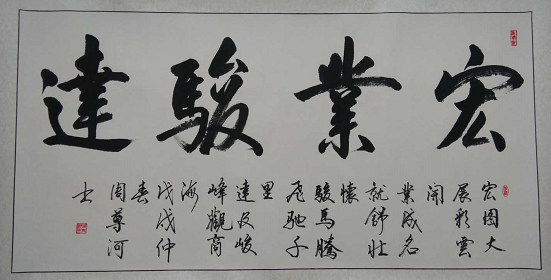 宏業駿達
宏图大
展彩雲
開
業成名
就舒壯
懷
駿馬騰
飛馳千
里
達及峻
峰觀商
海
戊戌仲
春
周尊河